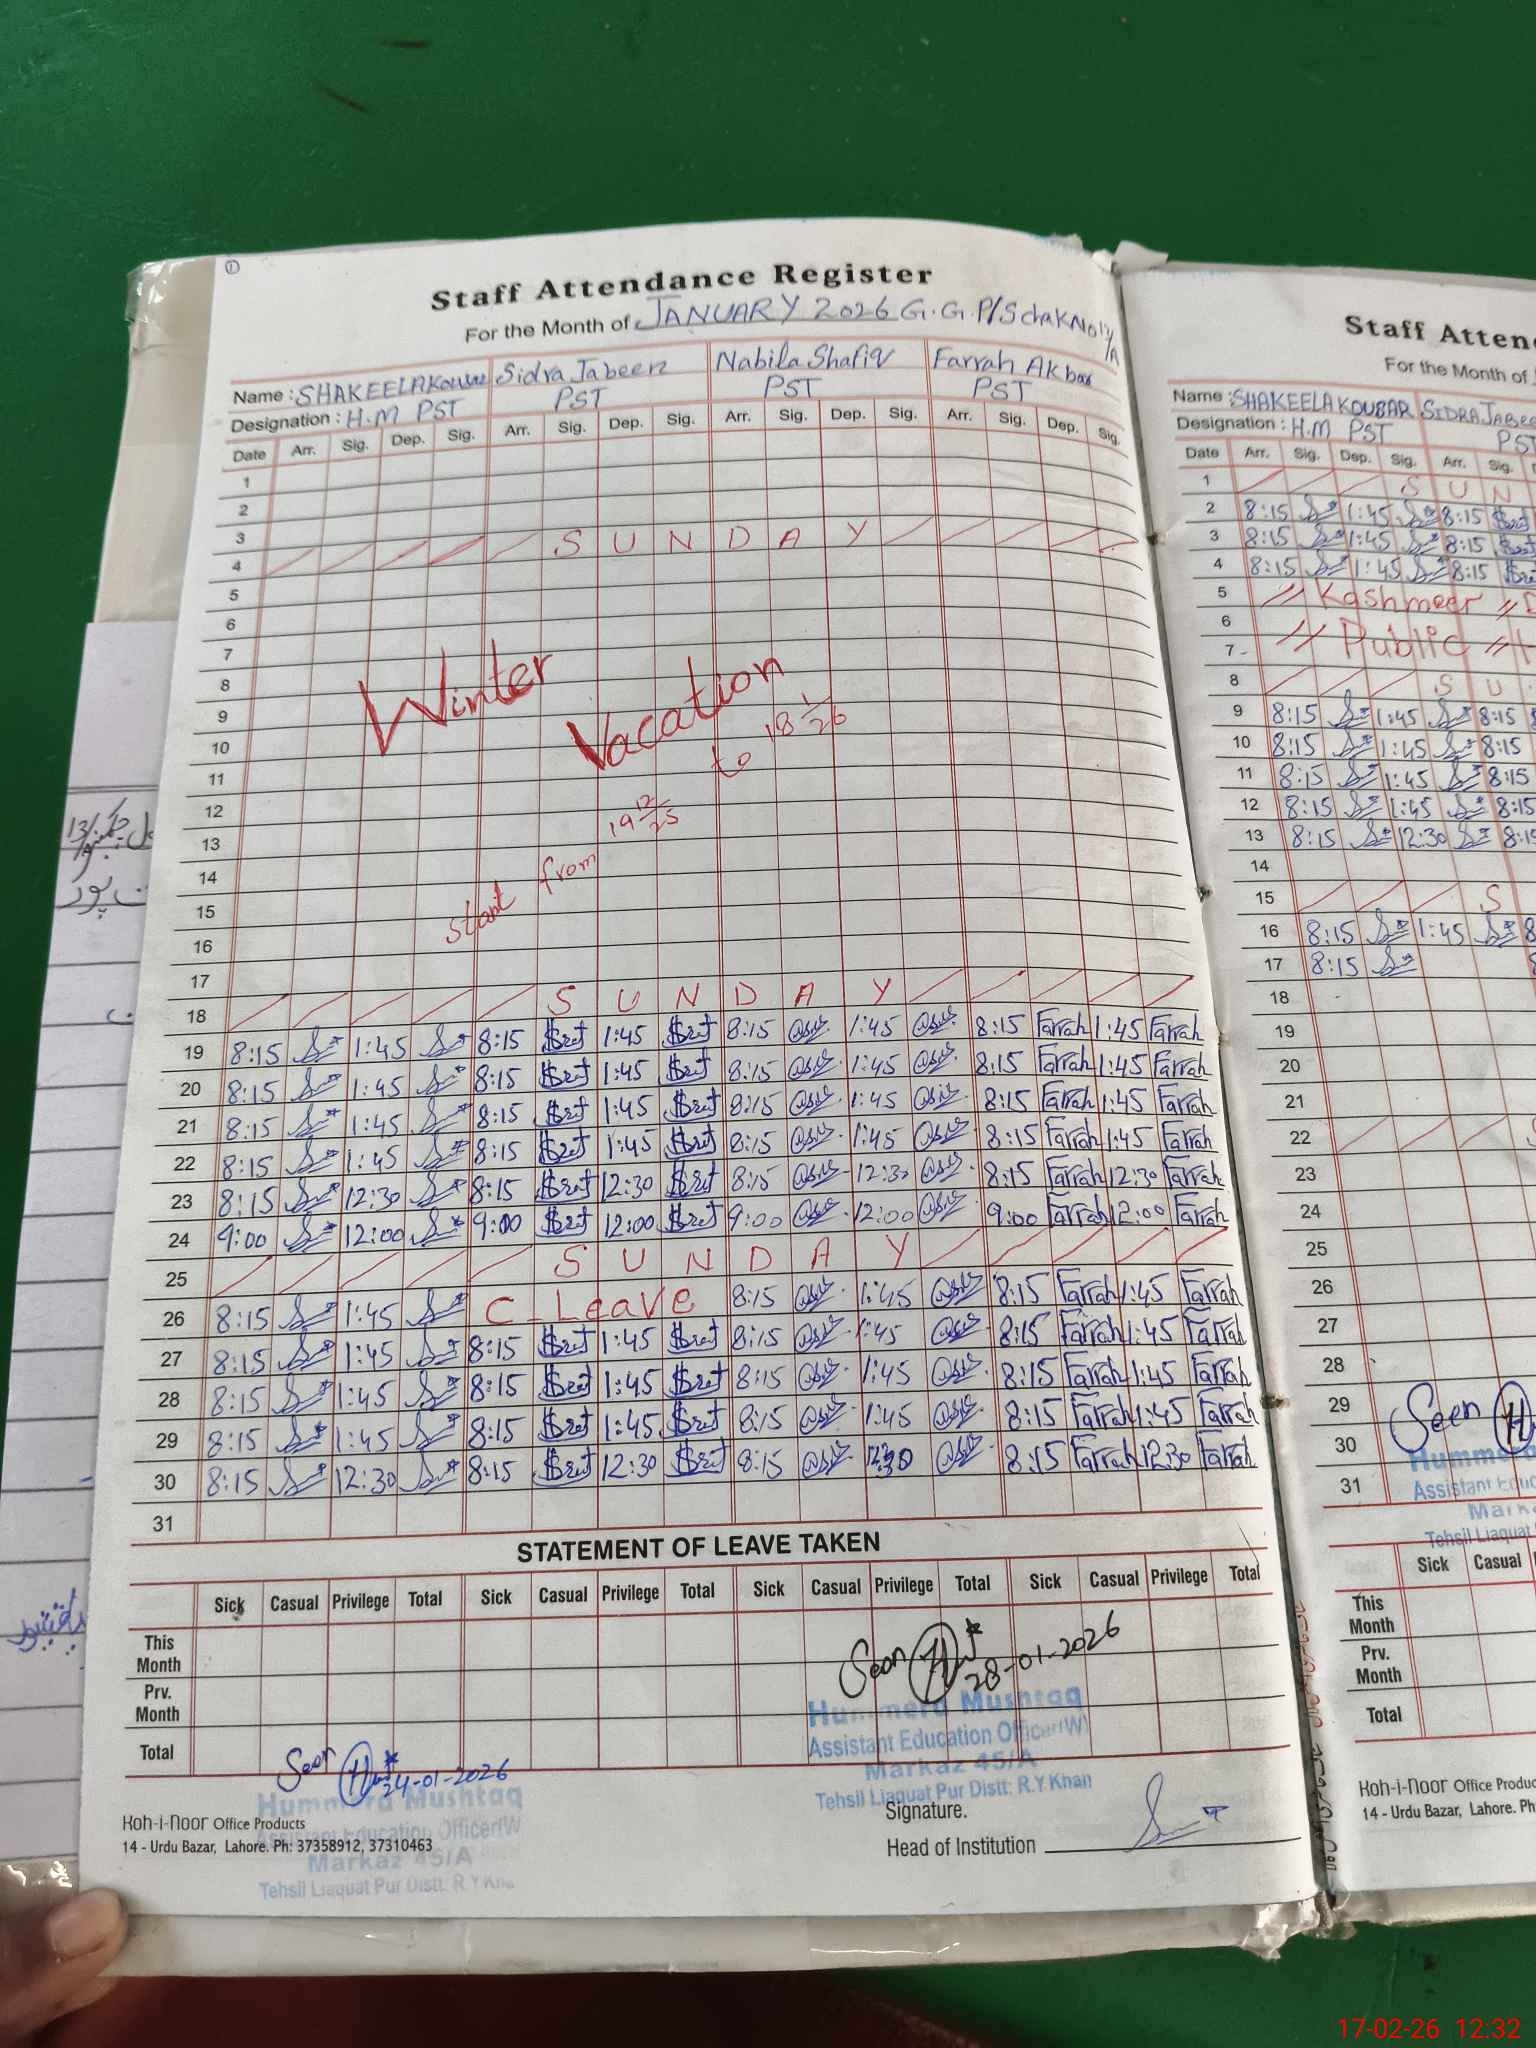 Staff Attendance Register
For the Month of JANUARY 2026 G.G.P/S chak No 13/A
Name : SHAKEELA Kousar Sidra Jabeen Nabila Shafiq Farrah Akbar
Designation : H.M PST PST PST PST
Date Arr. Sig. Dep. Sig. Arr. Sig. Dep. Sig. Arr. Sig. Dep. Sig. Arr. Sig. Dep. Sig.
1
2
3
4 S U N D A Y
5
6
7
8
9
10
11
12
13
14
15
16
17
Winter Vacation
start from 19 12/25 to 18 1/26
18 S U N D A Y
19 8:15 1:45 8:15 1:45 8:15 1:45 8:15 Farrah 1:45 Farrah
20 8:15 1:45 8:15 1:45 8:15 1:45 8:15 Farrah 1:45 Farrah
21 8:15 1:45 8:15 1:45 8:15 1:45 8:15 Farrah 1:45 Farrah
22 8:15 1:45 8:15 1:45 8:15 1:45 8:15 Farrah 1:45 Farrah
23 8:15 12:30 8:15 12:30 8:15 12:30 8:15 Farrah 12:30 Farrah
24 9:00 12:00 9:00 12:00 9:00 12:00 9:00 Farrah 12:00 Farrah
25 S U N D A Y
26 8:15 1:45 C-Leave 8:15 1:45 8:15 Farrah 1:45 Farrah
27 8:15 1:45 8:15 1:45 8:15 1:45 8:15 Farrah 1:45 Farrah
28 8:15 1:45 8:15 1:45 8:15 1:45 8:15 Farrah 1:45 Farrah
29 8:15 1:45 8:15 1:45 8:15 1:45 8:15 Farrah 1:45 Farrah
30 8:15 12:30 8:15 12:30 8:15 12:30 8:15 Farrah 12:30 Farrah
31
STATEMENT OF LEAVE TAKEN
Sick Casual Privilege Total Sick Casual Privilege Total Sick Casual Privilege Total Sick Casual Privilege Total
This Month
Prv. Month
Total
Seen 28-01-2026
Hummera Mushtaq
Assistant Education Officer(W)
Markaz 45/A
Tehsil Liaquat Pur Distt: R.Y.Khan
Seen 24-01-2026
Hummera Mushtaq
Assistant Education Officer(W
Markaz 45/A
Tehsil Liaquat Pur Distt: R.Y.Khan
Koh-i-Noor Office Products
14 - Urdu Bazar, Lahore. Ph: 37358912, 37310463
Signature.
Head of Institution
Staff Atten
For the Month of
Name : SHAKEELA KOUSAR SIDRA JABEE
Designation : H.M PST PST
Date Arr. Sig. Dep. Sig. Arr. Sig.
1 S U N
2 8:15 1:45 8:15
3 8:15 1:45 8:15
4 8:15 1:45 8:15
5 Kashmeer
6
7 Public
8 S U
9 8:15 1:45 8:15
10 8:15 1:45 8:15
11 8:15 1:45 8:15
12 8:15 1:45 8:15
13 8:15 12:30 8:15
14
15 S
16 8:15 1:45 8
17 8:15
18
19
20
21
22
23
24
25
26
27
28
29
30
31
Seen
Hummera
Assistant Educ
Mark
Tehsil Liaquat
Sick Casual
This Month
Prv. Month
Total
Koh-i-Noor Office Produc
14 - Urdu Bazar, Lahore. P
17-02-26 12:32